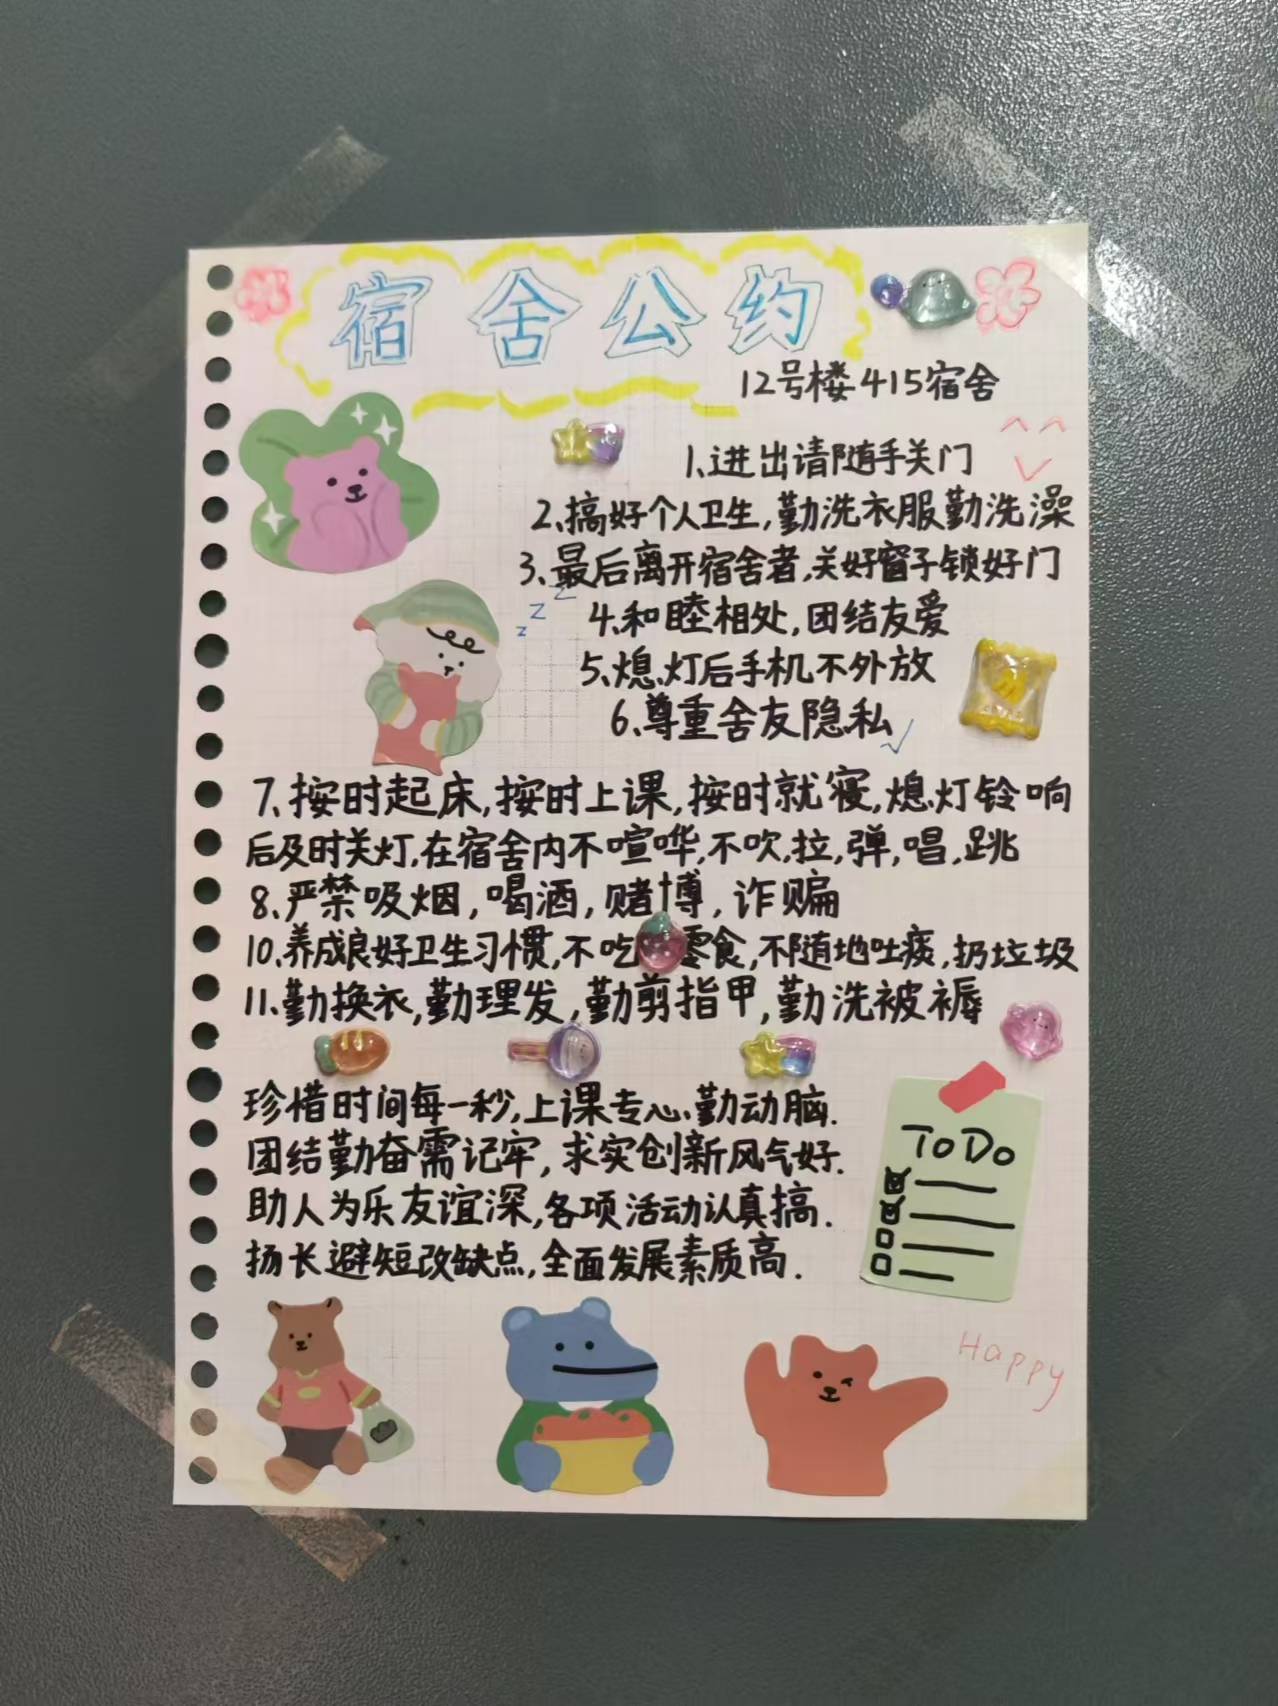 宿舍公约
12号楼415宿舍
1、进出请随手关门
2、搞好个人卫生,勤洗衣服勤洗澡
3、最后离开宿舍者,关好窗子锁好门
z z z
4、和睦相处,团结友爱
5、熄灯后手机不外放
6、尊重舍友隐私
7、按时起床,按时上课,按时就寝,熄灯铃响
后及时关灯,在宿舍内不喧哗,不吹,拉,弹,唱,跳
8、严禁吸烟,喝酒,赌博,诈骗
10、养成良好卫生习惯,不吃零食,不随地吐痰,扔垃圾
11、勤换衣,勤理发,勤剪指甲,勤洗被褥
珍惜时间每一秒,上课专心勤动脑.
团结勤奋需记牢,求实创新风气好.
助人为乐友谊深,各项活动认真搞.
扬长避短改缺点,全面发展素质高.
ToDo
Happy